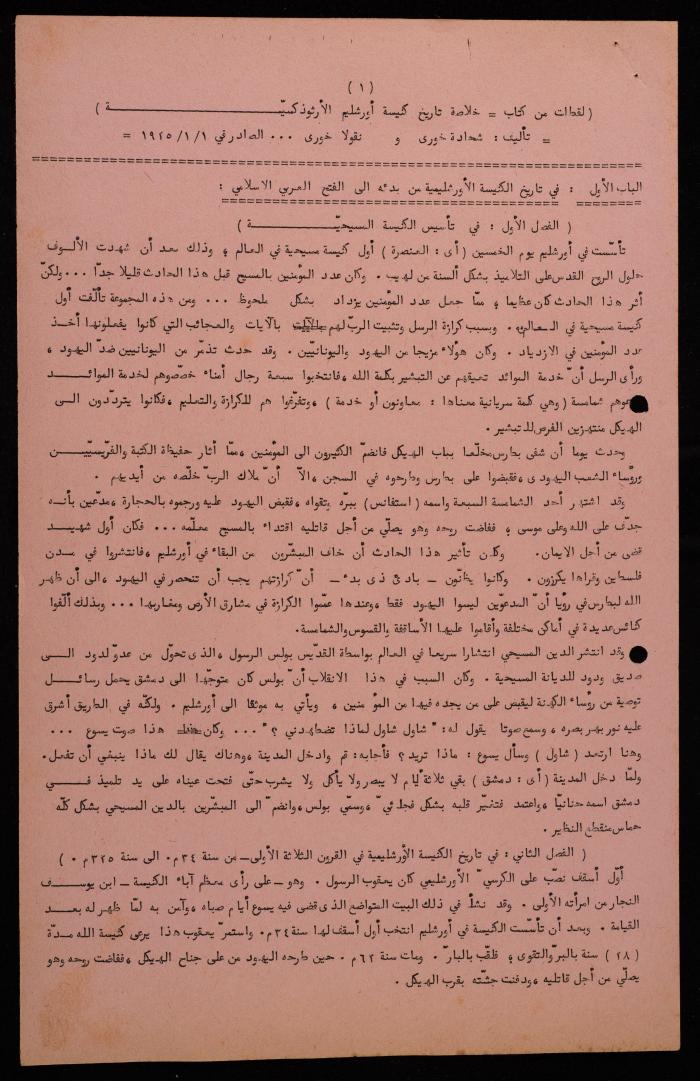 ( ١ )
( لقطات من كتاب = خلاصة تاريخ كنيسة أورشليم الأرثوذكسيّة )
= تأليف : شحادة خورى و نقولا خورى ... الصادر في ١/١/ ١٩٢٥ =
الباب الأول : في تاريخ الكنيسة الأورشليمية من بدئه الى الفتح العربي الاسلامي :
( الفصل الأول : في تأسيس الكنيسة المسيحيّة )
تأسّست في أورشليم يوم الخمسين ( أى : العنصرة ) أول كنيسة مسيحية في العالم ، وذلك بعد أن شهدت الألوف
حلول الروح القدس على التلاميذ بشكل ألسنة من لهيب . وكان عدد المؤمنين بالمسيح قبل هذا الحادث قليلا جدّا ... ولكنّ
أثر هذا الحادث كان عظيما ، ممّا جعل عدد المؤمنين يزداد بشكل ملحوظ ... ومن هذه المجموعة تألّفت أول
كنيسة مسيحية في العالم . وبسبب كرازة الرسل وتثبيت الربّ لهم بالآيات والعجائب التي كانوا يفعلونها أخذ
عدد المؤمنين في الازدياد . وكان هؤلاء مزيجا من اليهود واليونانيّين . وقد حدث تذمّر من اليونانيين ضدّ اليهود ،
ورأى الرسل أنّ خدمة الموائد تعيقهم عن التبشير بكلمة الله ، فانتخبوا سبعة رجال أمناء خصّصوهم لخدمة الموائد
شمامسة ( وهي كلمة سريانية معناها : معاونون أو خدمة ) ، وتفرّغوا هم للكرازة والتعليم ، فكانوا يتردّدون الى
الهيكل منتهزين الفرص للتبشير .
وحدث يوما أن شفى بطرس مخلّعا بباب الهيكل فانضمّ الكثيرون الى المؤمنين ، ممّا أثار حفيظة الكتبة والفرّيسيّين
ورؤساء الشعب اليهودى ، فقبضوا على بطرس وطرحوه في السجن ، الاّ أنّ ملاك الربّ خلّصه من أيديهم .
وقد اشتهر أحد الشمامسة السبعة واسمه ( استفانس ) ببرّه وتقواه ، فقبض اليهود عليه ورجموه بالحجارة ، مدّعين بأنه
جدّف على الله وعلى موسى ، ففاضت روحه وهو يصلّي من أجل قاتليه اقتداء بالمسيح معلّمه ... فكان أول شهيد
قضى من أجل الايمان . وكان تأثير هذا الحادث أن خاف المبشّرون من البقاء في أورشليم ، فانتشروا في مدن
فلسطين وقراها يكرزون . وكانوا يظنّون - بادئ ذى بدء - أنّ كرازتهم يجب أن تنحصر في اليهود ، الى أن ظهر
الله لبطرس في رؤيا أنّ المدعوّين ليسوا اليهود فقط ، وعندها عمّموا الكرازة في مشارق الأرض ومغاربها ... وبذلك ألّفوا
كنائس عديدة في أماكن مختلفة وأقاموا عليها الأساقفة والقسوس والشمامسة.
وقد انتشر الدين المسيحي انتشارا سريعا في العالم بواسطة القدّيس بولس الرسول ، الذى تحوّل من عدوّ لدود الى
صديق ودود للديانة المسيحية . وكان السبب في هذا الانقلاب أنّ بولس كان متوجّها الى دمشق يحمل رسائل
توصية من رؤساء الكهنة ليقبض على من يجده فيها من المؤمنين ، ويأتي به موثقا الى أورشليم . ولكنّه في الطريق أشرق
عليه نور بهر بصره ، وسمع صوتا يقول له : " شاول شاول لماذا تضطهدني ؟ " ... وكان هذا صوت يسوع ...
وهنا ارتعد ( شاول ) وسأل يسوع : ماذا تريد ؟ فأجابه : قم وادخل المدينة ، وهناك يقال لك ماذا ينبغي أن تفعل .
ولمّا دخل المدينة ( أى : دمشق ) بقي ثلاثة أيام لا يبصر ولا يأكل ولا يشرب حتّى فتحت عيناه على يد تلميذ في
دمشق اسمه حنانيّا ، واعتمد فتغيّر قلبه بشكل فجائيّ ، وسمّي بولس ، وانضمّ الى المبشّرين بالدين المسيحي بشكل كلّه
حماس منقطع النظير .
( الفصل الثاني : في تاريخ الكنيسة الأورشليمية في القرون الثلاثة الأولى - من سنة ٣٤م. الى سنة ٣٢٥م . )
أوّل أسقف نصّب على الكرسيّ الأورشليمي كان يعقوب الرسول . وهو - على رأى معظم آباء الكنيسة - ابن يوسف
النجار من امرأته الأولى . وقد نشأ في ذلك البيت المتواضع الذى قضى فيه يسوع أيام صباه ، وآمن به لمّا ظهر له بعد
القيامة . وبعد أن تأسّست الكنيسة في أورشليم انتخب أول أسقف لها سنة ٣٤م. واستمرّ يعقوب هذا يرعى كنيسة الله مدّة
( ٢٨ ) سنة بالبرّ والتقوى ، فلقّب بالبارّ . ومات سنة ٦٢م . حين طرحه اليهود من على جناح الهيكل ، ففاضت روحه وهو
يصلّي من أجل قاتليه ، ودفنت جثّته بقرب الهيكل .